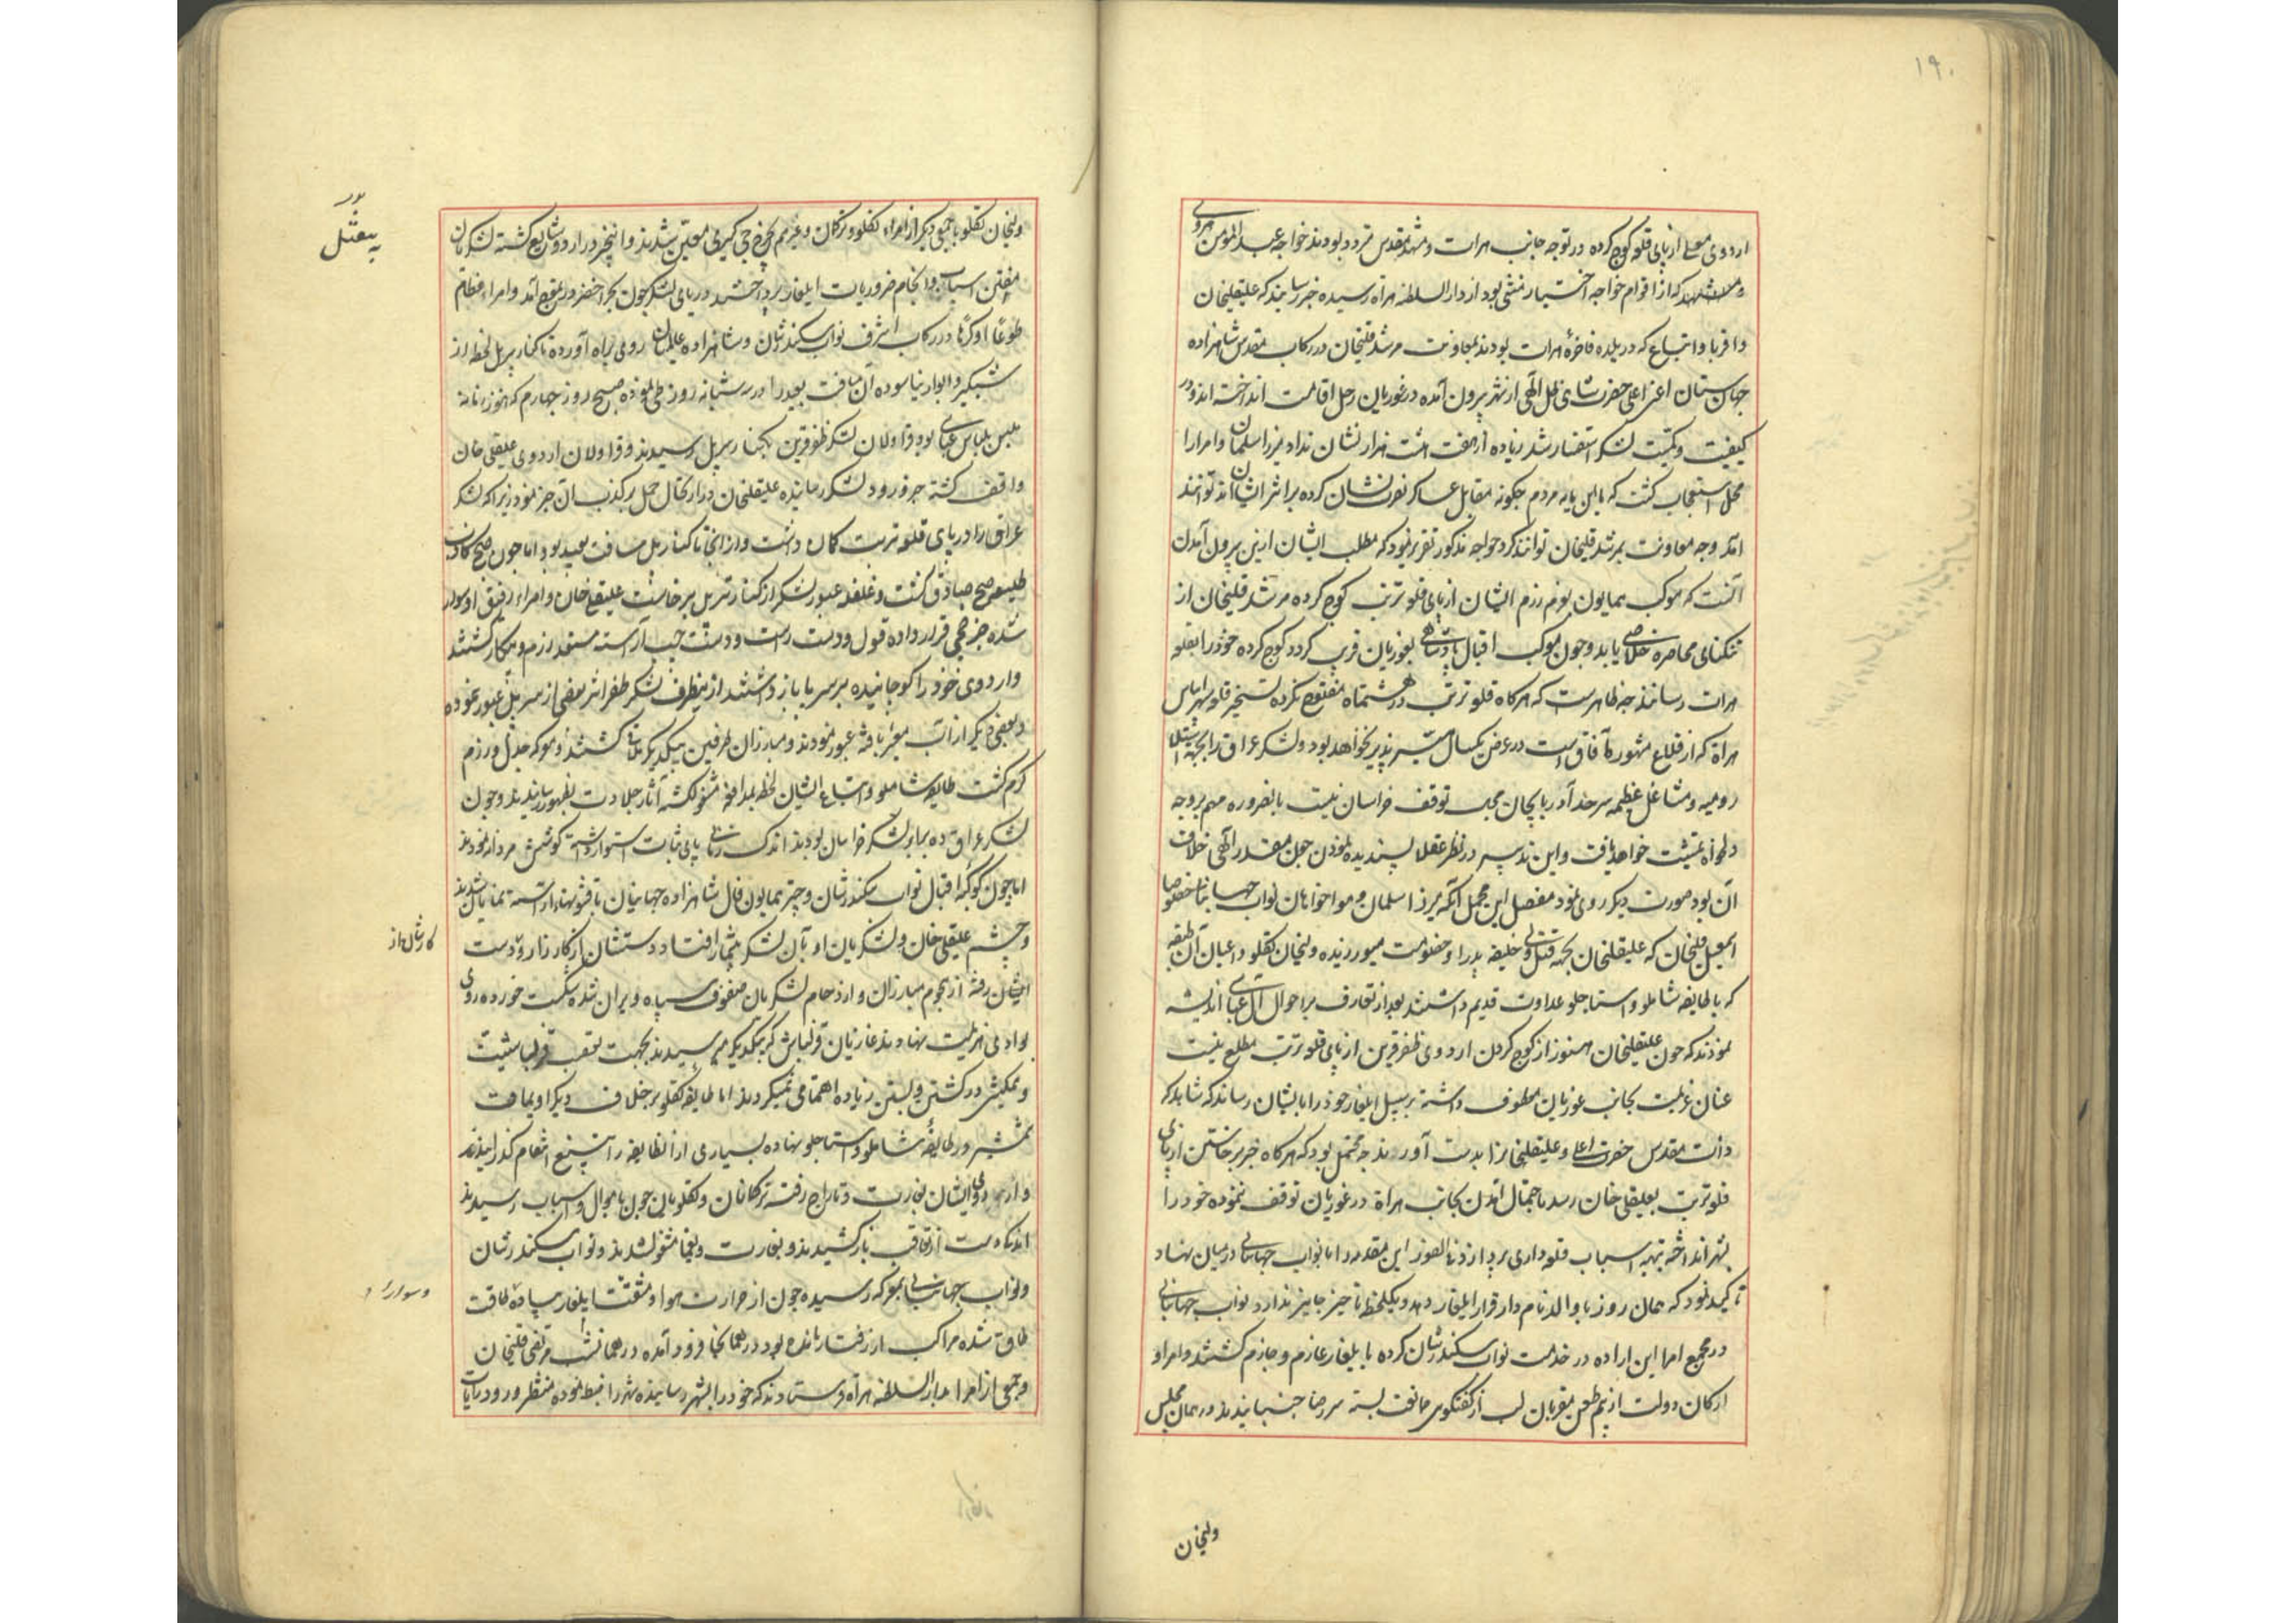 ۱۹۰
اردوی معلی از پای قلعه کوچ کرده در توجه جانب هرات و مشهد مقدس متردد بودند خواجه عبدالمؤمن هروی
که از اقوام خواجه اختیار منشی بود از دارالسلطنه هراة رسیده خبر رسانید که علیقلیخان
و اقربا و اتباع که در بلده فاخرهٔ هرات بودند بمعاونت مرشدقلیخان در رکاب مقدس شاهزاده
جهان ستان اعنی اعلی حضرت شاهی ظل الهی از شهر بیرون آمده در غوریان رحل اقامت انداخته اند و در
کیفیت و کمیت لشکر استفسار شد زیاده از هفت هشت هزار نشان نداد میرزا سلمان و امرا را
محل استعجاب گشت که باین پایه مردم چگونه مقابل عساکر نصرت نشان کرده برابر ایشان توانند
آمد و چه معاونت بمرشدقلیخان توانند کرد خواجه مذکور تقریر نمود که مطلب ایشان ازین بیرون آمدن
آنست که موکب همایون بعزم رزم ایشان از پای قلعه تربت کوچ کرده مرشدقلیخان از
تنکنای محاصره خلاصی یابد و چون موکب اقبال پادشاهی بغوریان قریب گردد کوچ کرده خود را بقلعه
هرات رسانند چه ظاهرست که هرگاه قلعه تربت در ششماه مفتوح نکرده تسخیر قلعه سپهر اساس
هراة که از قلاع مشهوره آفاق است در عرض یکسال میسر پذیر نخواهد بود و لشکر عراق را بجهة استیلاء
رومیه و مشاغل عظیمه سرحد آذربایجان مجال توقف خراسان نیست بالضروره مهم بر وجه
دلخواه تمشیت خواهد یافت و این تدبیر در نظر عقلا پسندیده نمود چون مقدر الهی خلاف
آن بود صورت دیگر روی نمود مفصل این مجمل آنکه میرزا سلمان و هواخواهان نواب جهانبانی خصوصا
اسمعیل قلیخان که علیقلیخان بجهة قتل ولی خلیفه پدر او خصومت میورزیده ولیخان تکلو و اعیان آن طبقه
که با طایفه شاملو و استاجلو عداوت قدیم داشتند بعد از تعارف بر احوال اندیشه
نمودند که چون علیقلیخان هنوز از کوچ کردن اردوی ظفرقرین از پای قلعه تربت مطلع نیست
عنان عزیمت بجانب غوریان معطوف داشته بر سبیل ایلغار خود را بایشان رساند که شاید که
ذات مقدس حضرت اعلی و علیقلیخان را بدست آورند چه محتمل بود که هرگاه خبر برخاستن از پای
قلعه تربت بعلیقلی خان رسد باحتمال آمدن بجانب هراة در غوریان توقف ننموده خود را
بشهر انداخته بتهیه اسباب قلعه داری پردازد فی الفور این مقدمه را با نواب جهانبانی در میان نهاد
تاکید نمود که همان روز با والد نامدار قرار ایلغار دهد و یکلحظه تاخیر جایز ندارد نواب جهانبانی
در مجمع امرا این اراده در خدمت نواب سکندرشان کرده با یلغار عازم و جازم گشتند و امرا و
ارکان دولت از بیم طعن مقربان لب از گفتگوی مخالفت بسته سر رضا جنبانیدند در همان مجلس
ولیخان
ولیخان تکلو با جمعی دیگر از امراء تکلو و ترکمان و غیرهم بچرخچی گیری معین شدند و این خبر در اردو شایع گشته لشکریان
اسباب و انجام ضروریات ایلغار پرداختند دریای لشکر چون بحر اخضر در تموج آمد و امراء عظام
طوعا او کرها در رکاب اشرف نواب سکندرشان و شاهزاده عالمیان روی براه آورده تا کنار پرپل لحظه از
شبگیر و ایوار نیاسوده آن مسافت بعید را در سه شبانه روز طی نموده صبح روز چهارم که هنوز زمانه
ملبس بلباس عباسی بود قراولان لشکر ظفرقرین بکنار سرپل رسیدند و قراولان اردوی علیقلی خان
واقف گشته خبر ورود لشکر رسانیده علیقلیخان دران حال حمل بر کذب آن خبر نمود زیرا که لشکر
عراق را در پای قلعه تربت گمان داشت و از آنجا تا کنار پل مسافت بعید بود اما چون صبح کاذب
طلیعه صبح صادق گشت و غلغله عبور لشکر از کنار سرپل برخاست علیقلی خان و امراء رفیق او سوار
شده چرخچی قرار داده قول و دست راست و دست چپ آراسته مستعد رزم و پیکار گشتند
و اردوی خود را کوچانیده بر سر پا باز داشتند ازینطرف لشکر ظفر اثر بعضی از سر پل عبور نموده
و بعضی دیگر از آب معبر یافته عبور نمودند و مبارزان طرفین بیکدیگر ملاقی گشتند و معرکه جدل و رزم
گرم گشت طایفه شاملو و اتباع ایشان لحظه بمدافعه مشغول گشته آثار جلادت بظهور رسانیدند و چون
لشکر عراق ده برابر لشکر خراسان بودند اندک زمانی پای ثبات استوار داشته کوشش مردانه نمودند
اما چون کوکبه اقبال نواب سکندرشان و چتر همایون فال شاهزاده جهانیان نمایان شد
و چشم علیقلی خان و لشکریان او بآن لشکر بیشمار افتاد دستشان از کار زار و دست
ایشان رفته از هجوم مبارزان و ازدحام لشکریان صفوف سپاه ویران شده شکست خورده روی
بوادی هزیمت نهادند غازیان قزلباش که بیکدیگر میرسیدند بجهت تعصب قزلباشیت
و همکیشی در کشتن و بستن زیاده اهتمامی نمیکردند اما طایفه تکلو بر خلاف دیگر اویماقات
شمشیر در طایفه شاملو و استاجلو نهاده بسیاری از انطایفه را بتیغ انتقام گذرانیدند
و اردوی ایشان بغارت و تاراج رفته ترکمانان و تکلویان چون باموال و اسباب رسیدند
اندک دست از تعاقب باز کشیدند و بغارت و یغما مشغول شدند و نواب سکندرشان
و نواب جهانبانی بمعرکه رسیده چون از حرارت هوا و مشقت ایلغار سپاه طاقت
طاق شده مراکب از رفتار مانده بود در همانجا فرود آمده در همانشب مرتضی قلیخان
و جمعی از امرا بدارالسلطنه هراة فرستادند که خود را بشهر رسانیده شهر را ضبط نموده منتظر ورود رایات
کارشان از